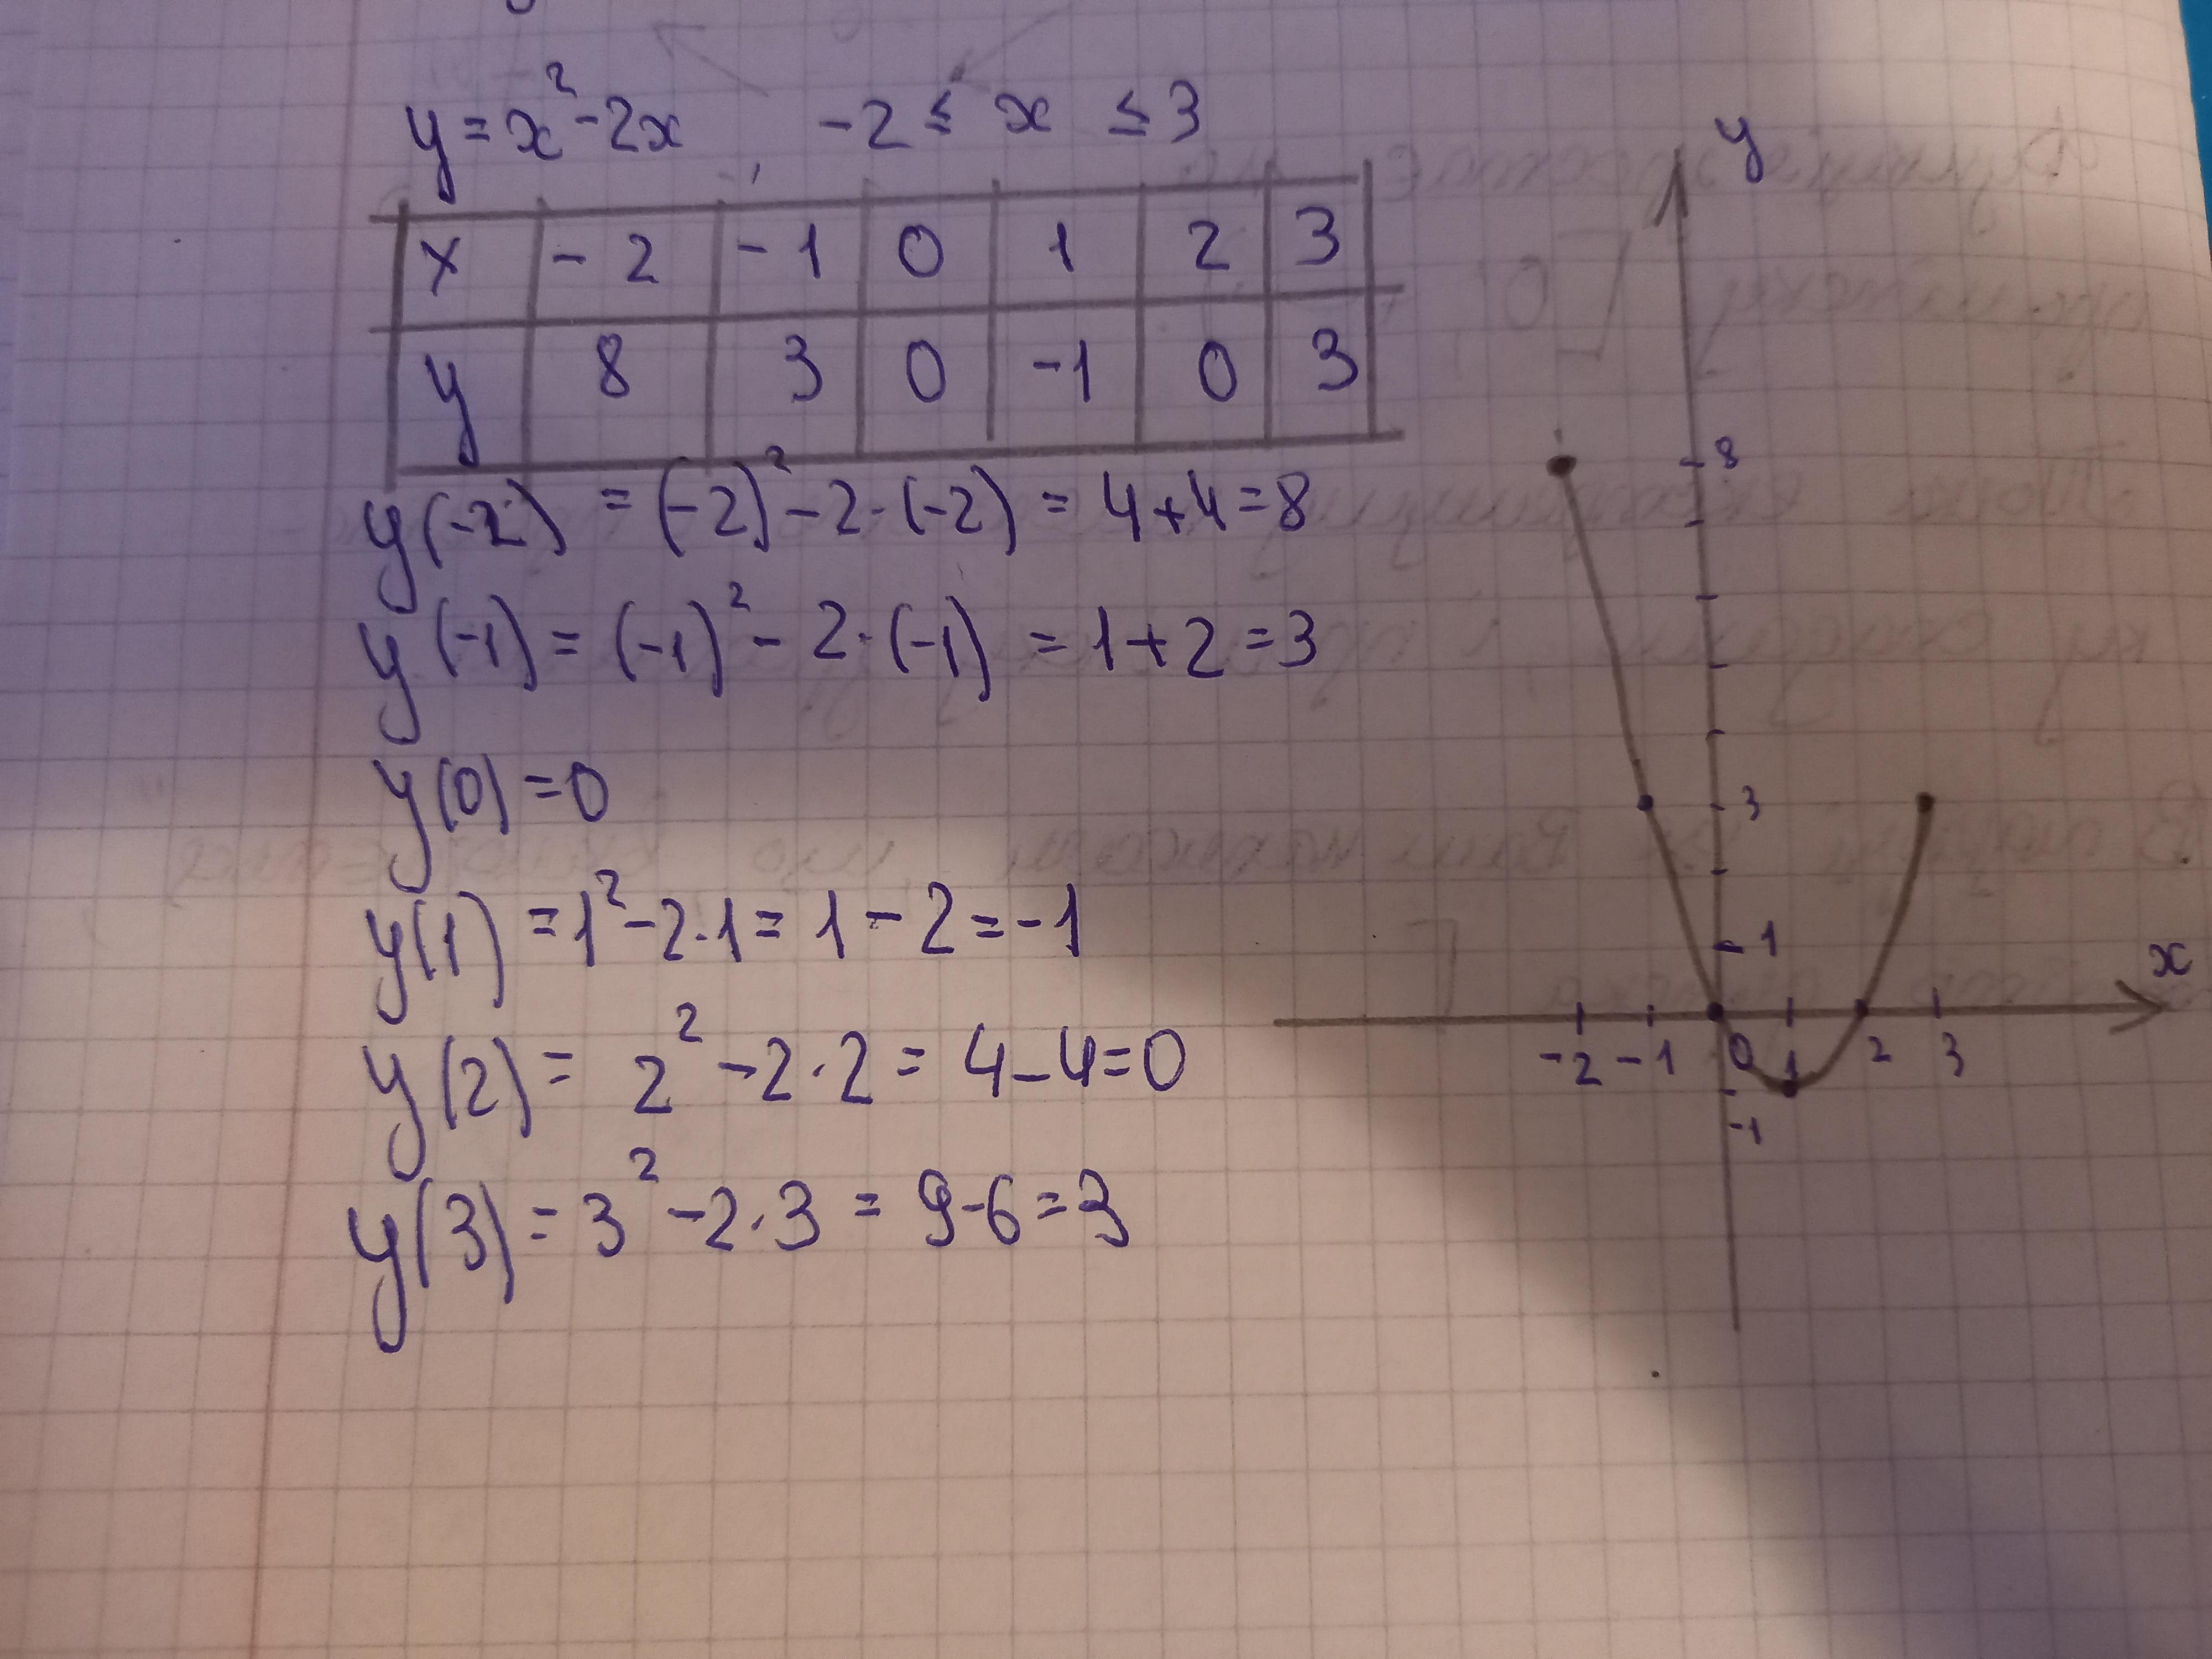 y = x² - 2x , -2 ≤ x ≤ 3
x -2 -1 0 1 2 3
y 8 3 0 -1 0 3
y(-2) = (-2)² - 2·(-2) = 4+4=8
y(-1) = (-1)² - 2·(-1) = 1+2=3
y(0) = 0
y(1) = 1² - 2·1 = 1 - 2 = -1
y(2) = 2² - 2·2 = 4-4=0
y(3) = 3² - 2·3 = 9-6=3
y
8
3
1
x
-2 -1 0 1 2 3
-1